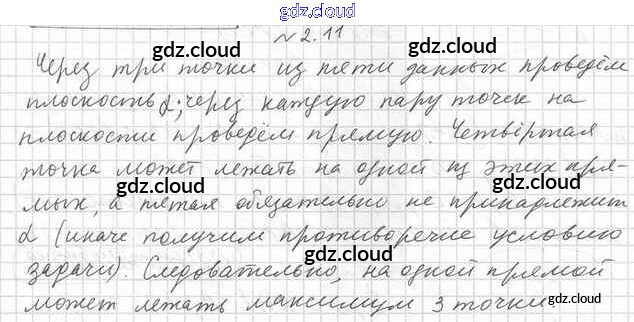 gdz.cloud
№2.11
Через три точки из пяти данных проведём
плоскость α; через каждую пару точек на
плоскости проведём прямую. Четвёртая
точка может лежать на одной из этих пря-
мых, а пятая обязательно не принадлежит
α (иначе получим противоречие условию
задачи). Следовательно, на одной прямой
может лежать максимум 3 точки.
gdz.cloud
gdz.cloud
gdz.cloud
gdz.cloud
gdz.cloud
gdz.cloud
gdz.cloud
gdz.cloud
gdz.cloud